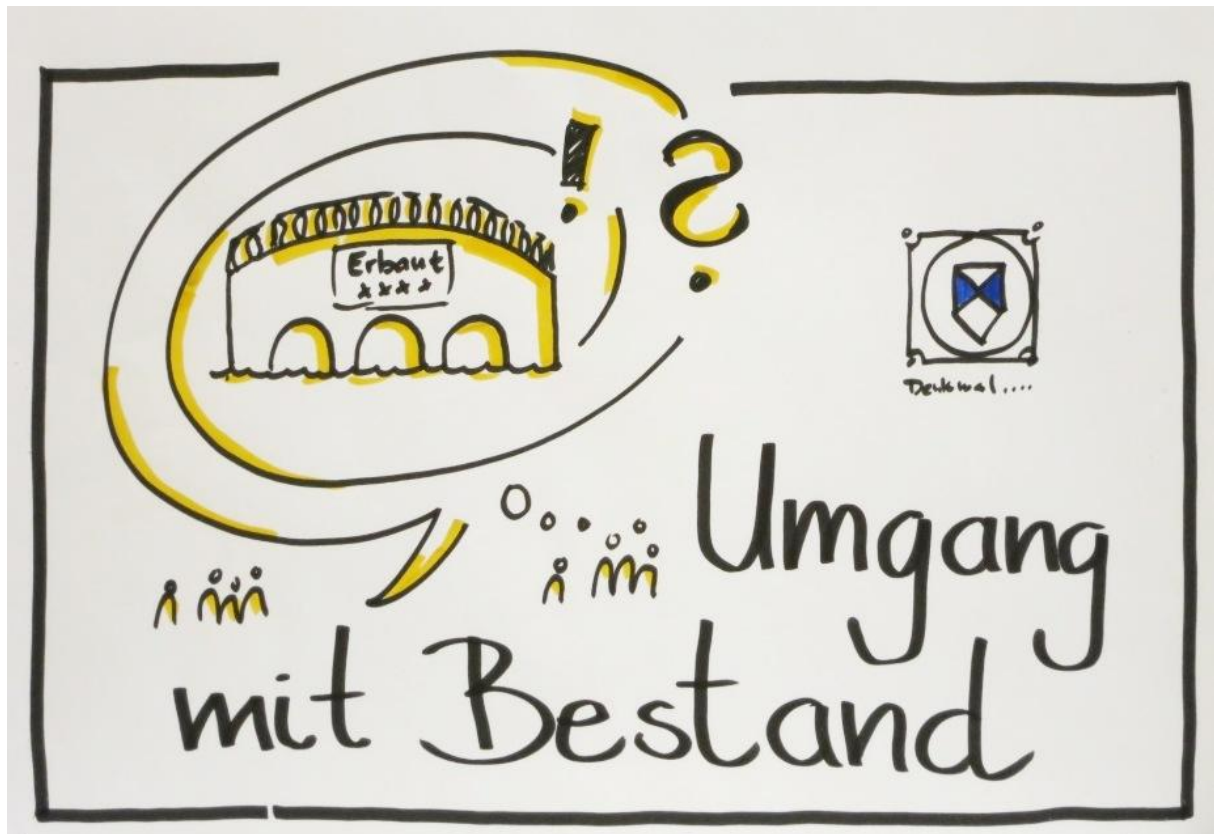 ! ?
Erbaut
xxxx
Denkmal....
Umgang
mit Bestand